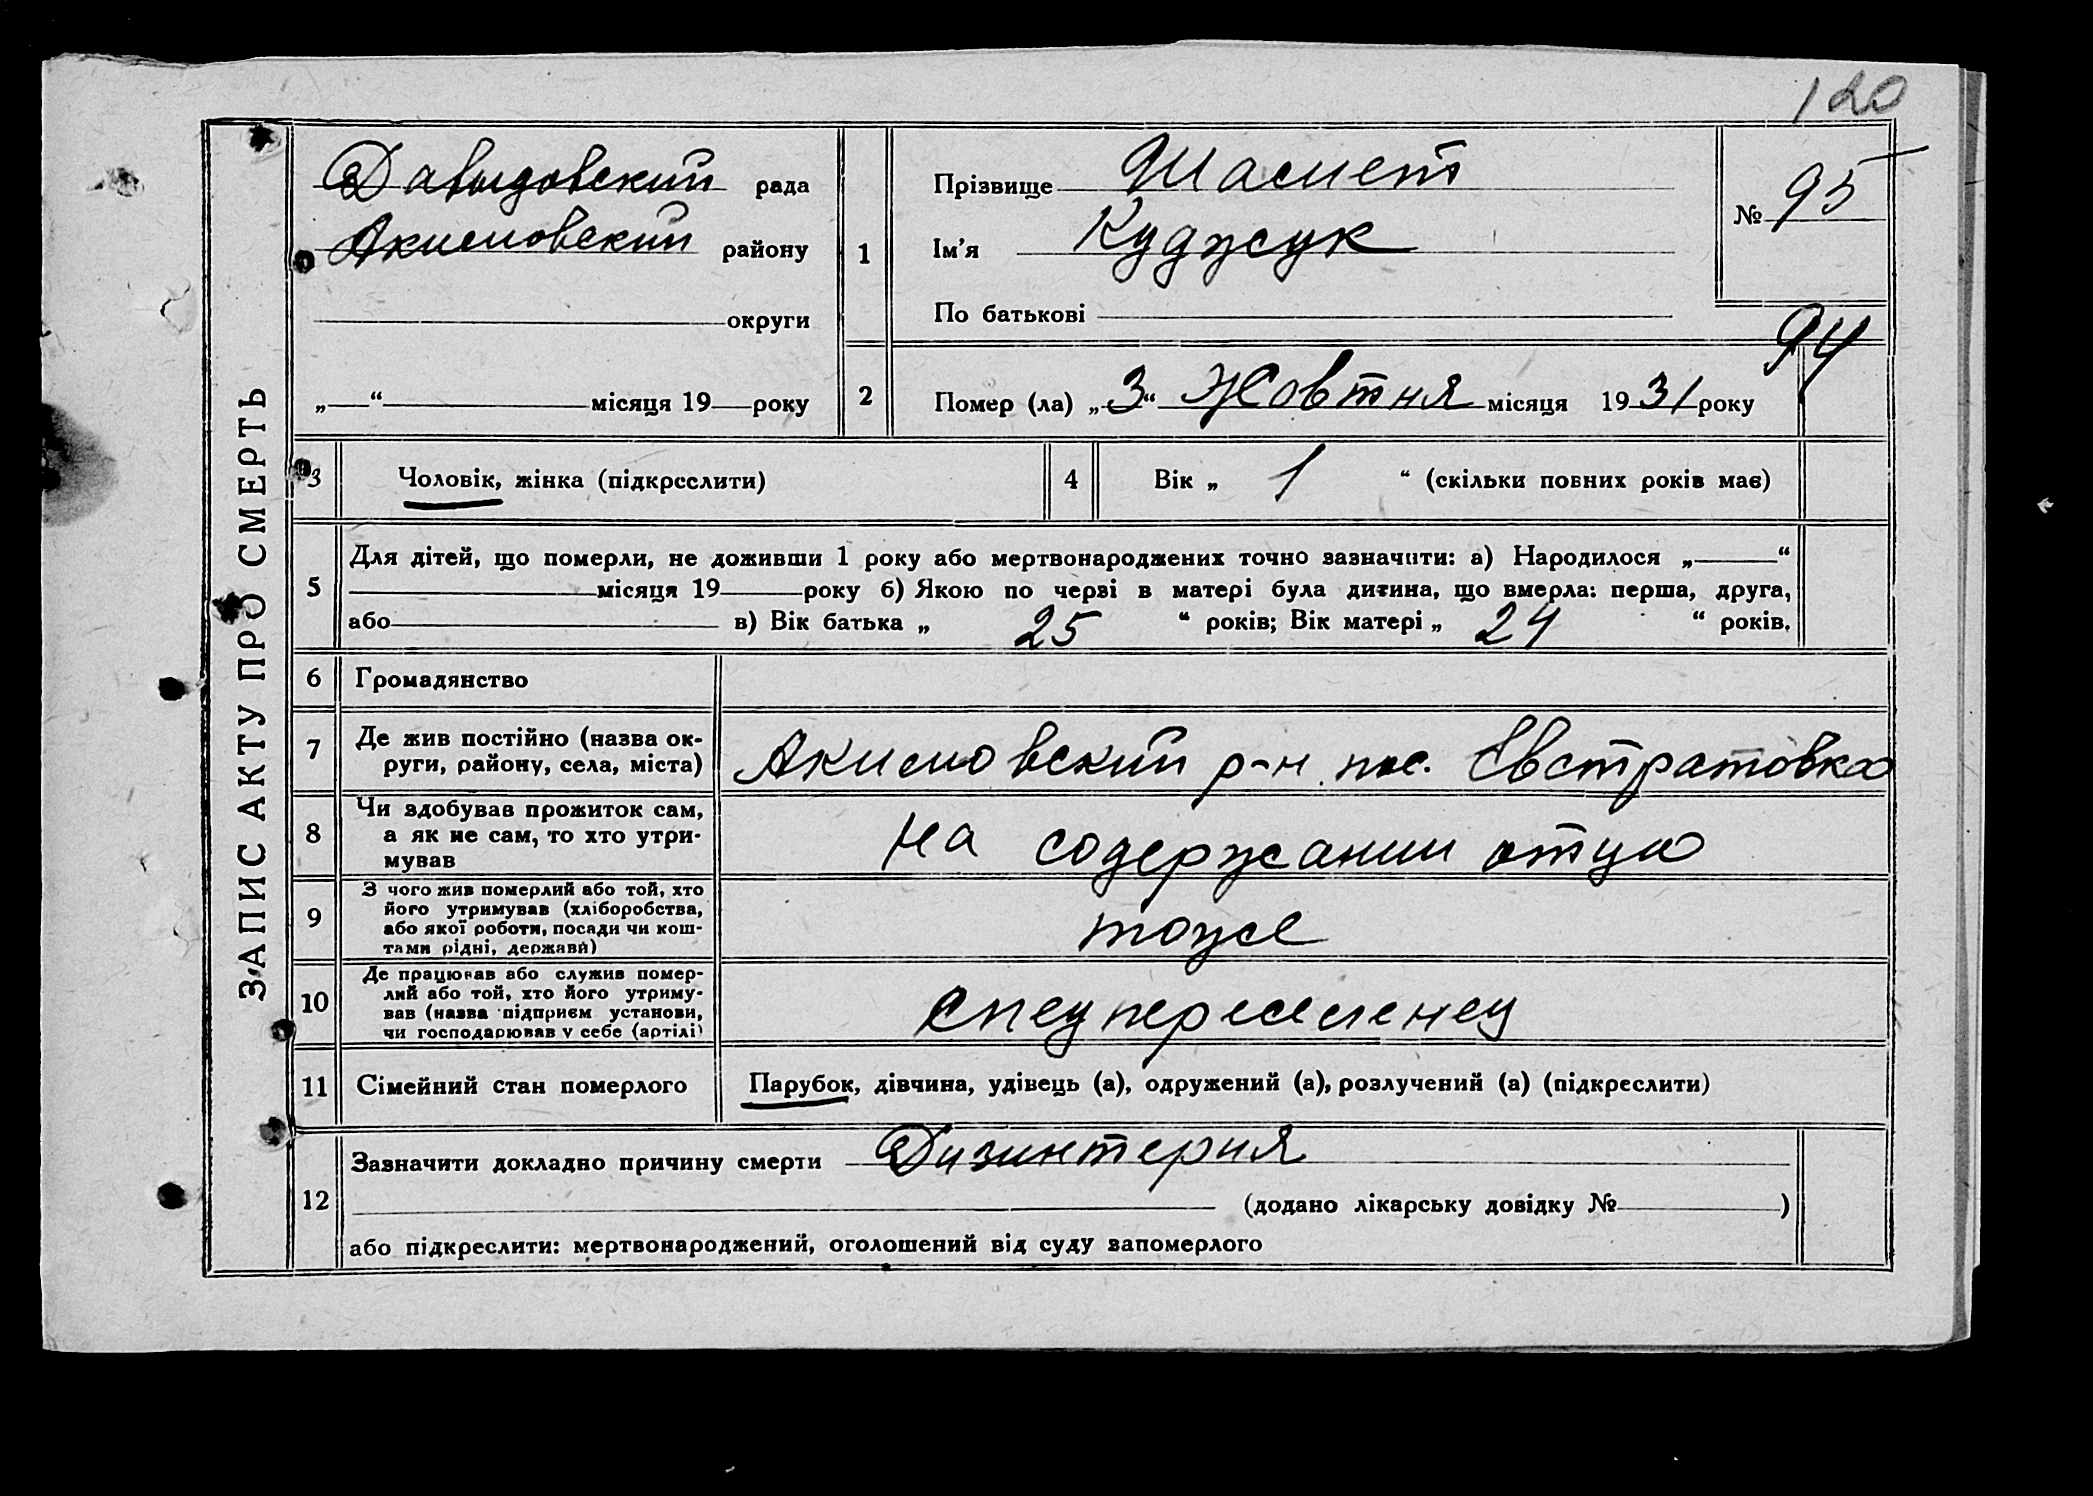 120
ЗАПИС АКТУ ПРО СМЕРТЬ
Давыдовский рада
Акимовский району
округи
„ “ місяця 19 року
1
Прізвище Шамет
Ім’я Куджук
По батькові
№ 95
94
2
Помер (ла) „3“ Жовтня місяця 1931 року
3
Чоловік, жінка (підкреслити)
4
Вік „ 1 “ (скільки повних років має)
5
Для дітей, що померли, не доживши 1 року або мертвонароджених точно зазначити: а) Народилося „ “
місяця 19 року б) Якою по черзі в матері була дитина, що вмерла: перша, друга,
або в) Вік батька „ 25 “ років; Вік матері „ 24 “ років.
6
Громадянство
7
Де жив постійно (назва ок-
руги, району, села, міста)
Акимовский р-н пос. Евстратовка
8
Чи здобував прожиток сам,
а як не сам, то хто утри-
мував
на содержании отца
9
З чого жив померлий або той, хто
його утримував (хліборобства,
або якої роботи, посади чи кош-
тами рідні, держави)
тоже
10
Де працював або служив помер-
лий або той, хто його утриму-
вав (назва підприєм установи,
чи господарював у себе (артілі)
спецпереселенец
11
Сімейний стан померлого
Парубок, дівчина, удівець (а), одружений (а), розлучений (а) (підкреслити)
12
Зазначити докладно причину смерти Дизинтерия
(додано лікарську довідку № )
або підкреслити: мертвонароджений, оголошений від суду запомерлого